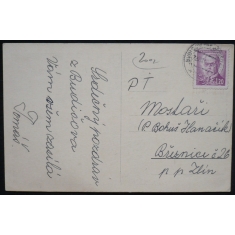 Srdečný pozdrav
z Budišova
Vám všem zasílá
Tomáš
PŤ
Mostaři
(P. Bohuš Hanačík)
Březnice č. 26
p. p. Zlín